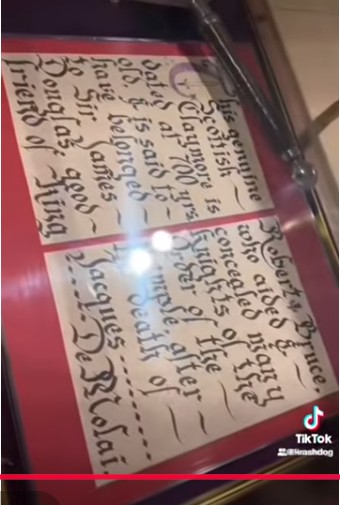 This genuine
Scottish ~
Claymore is
dated at 700 yrs.
old. & is said to ~
have belonged ~
to Sir James ~
Douglas good ~
friend of King
Robert y Bruce.
who aided & ~
concealed many
Knights of the
Order of the ~
Temple, after ~
death of
Jacques
De Molai.
TikTok